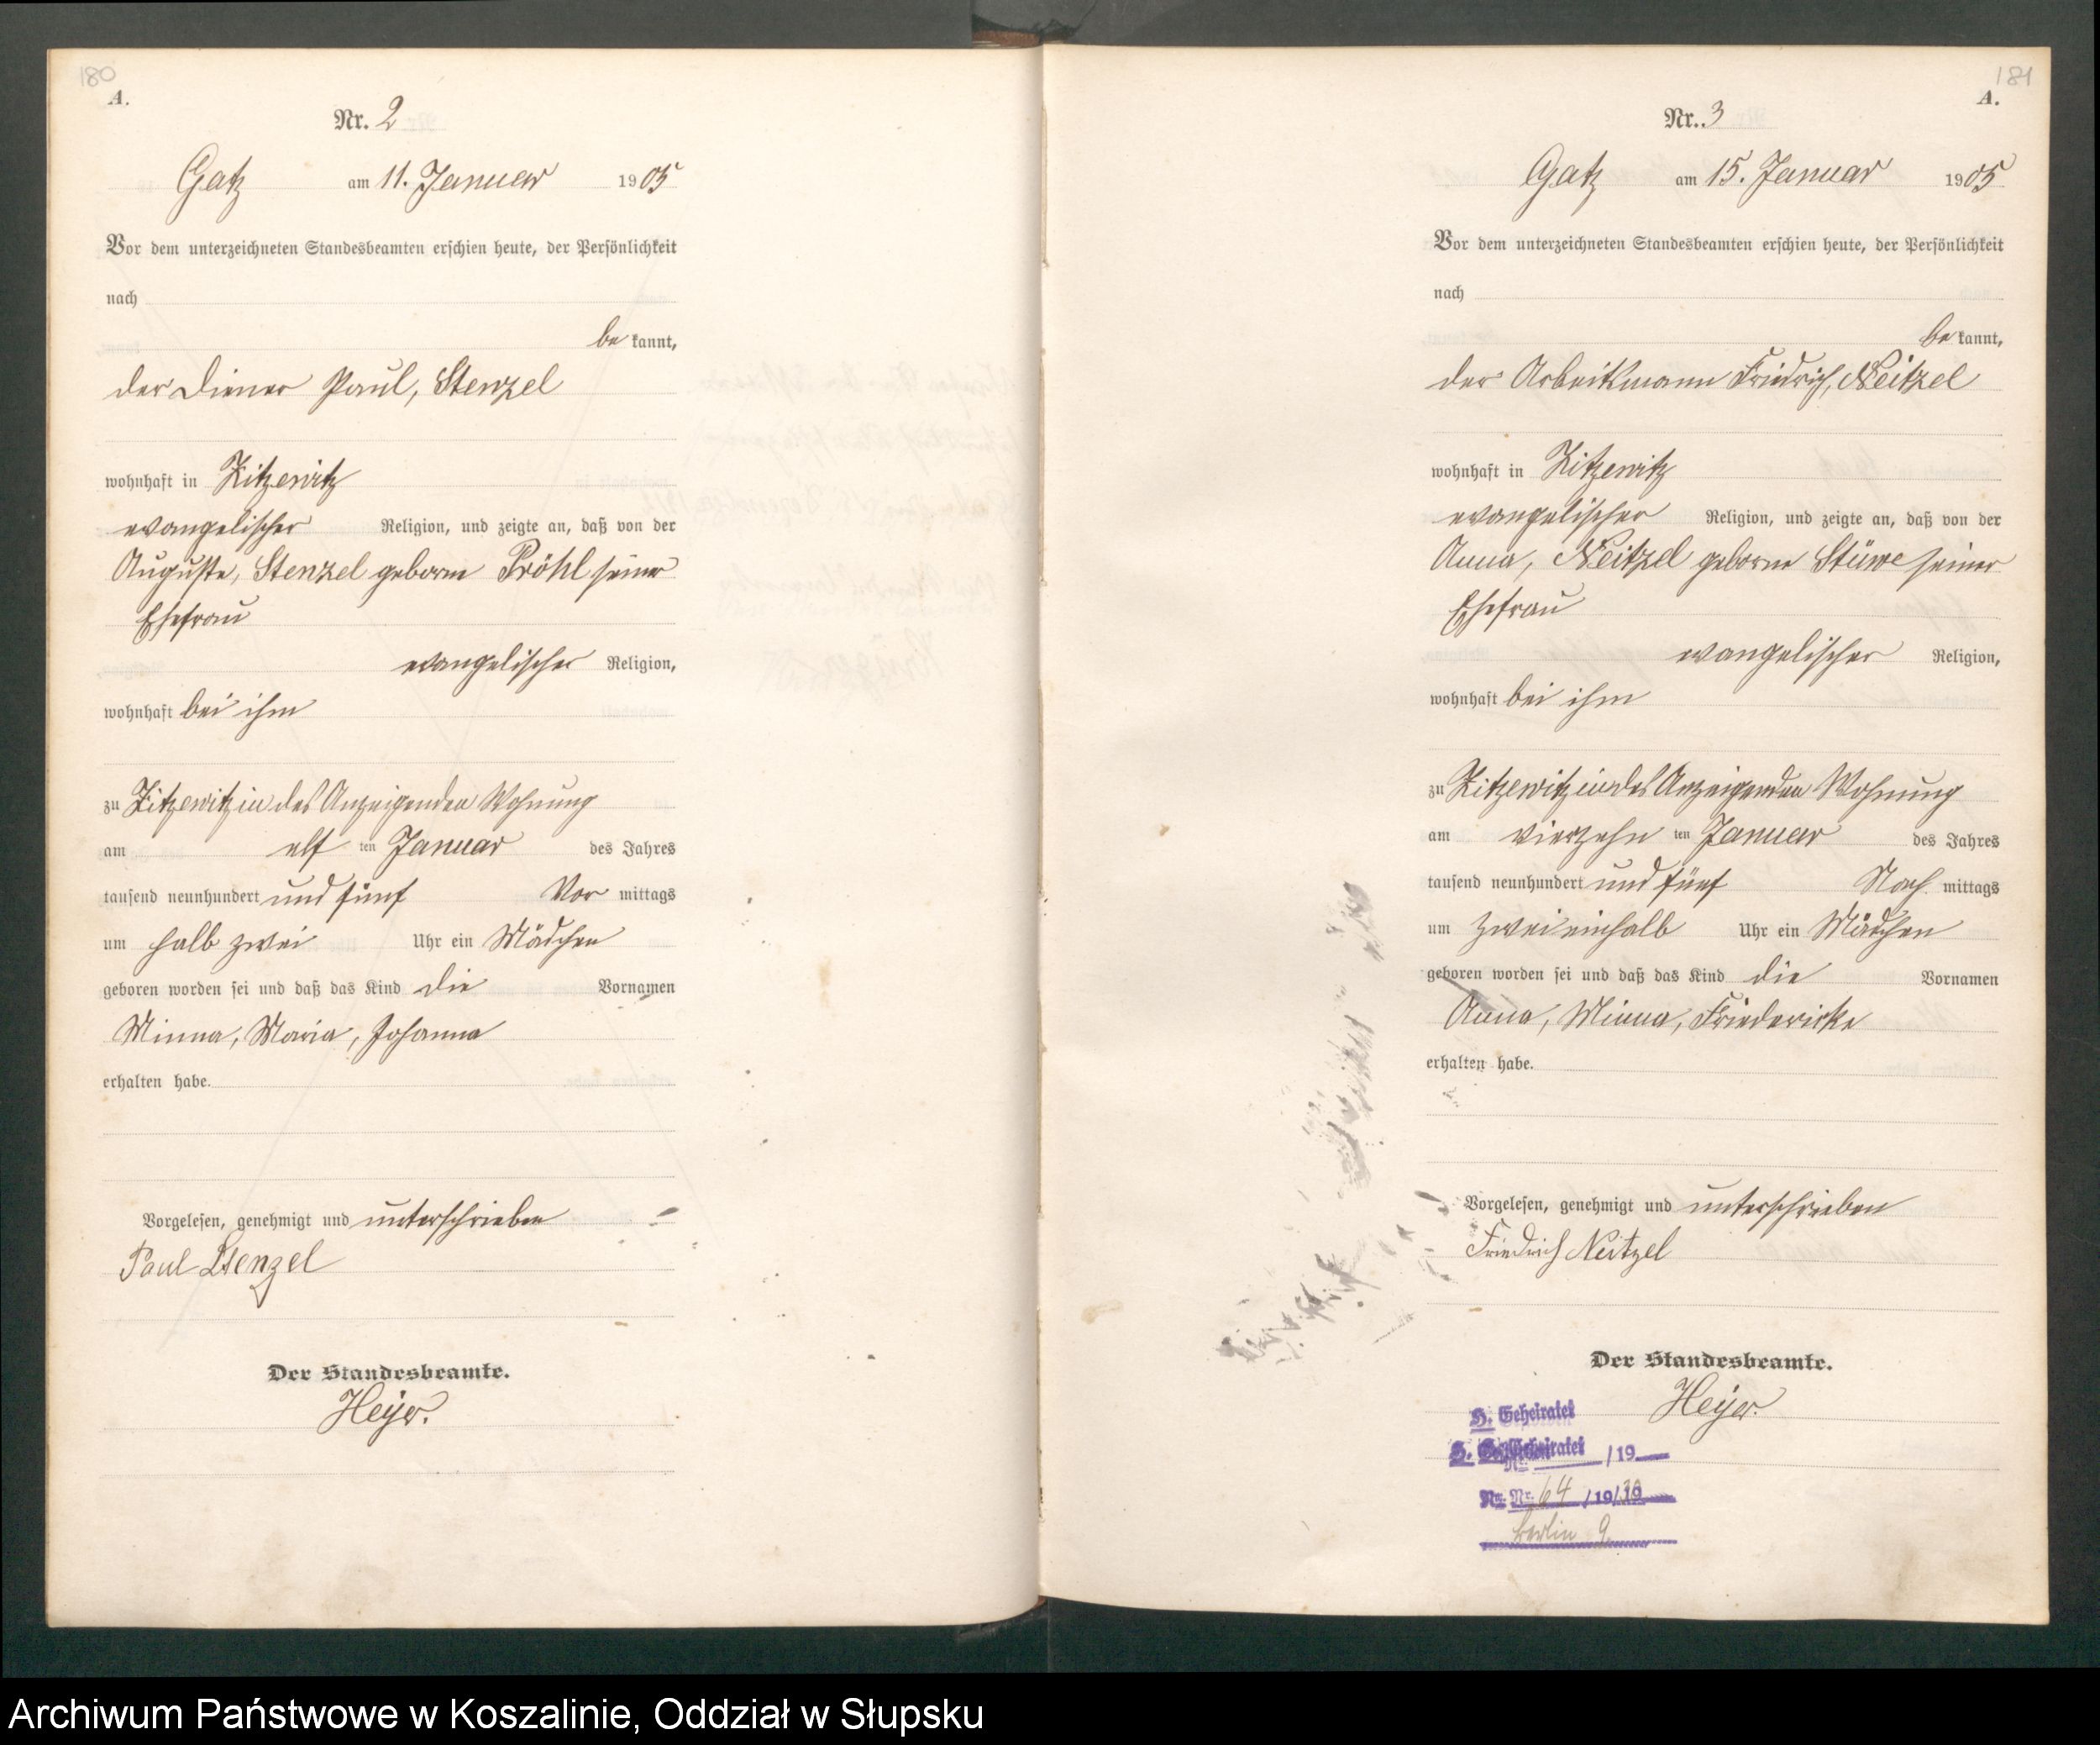 180
A.
Nr. 2
Gatz am 11. Januar 1905
Vor dem unterzeichneten Standesbeamten erschien heute, der Persönlichkeit
nach
be kannt,
der Diener Paul, Stenzel
wohnhaft in Zitzewitz
evangelischer Religion, und zeigte an, daß von der
Auguste, Stenzel geborne Pröhl seiner
Ehefrau
evangelischer Religion,
wohnhaft bei ihm
zu Zitzewitz in des Anzeigenden Wohnung
am elf ten Januar des Jahres
tausend neunhundert und fünf Vor mittags
um halb zwei Uhr ein Mädchen
geboren worden sei und daß das Kind die Vornamen
Minna, Maria, Johanna
erhalten habe.
Vorgelesen, genehmigt und unterschrieben
Paul Stenzel
Der Standesbeamte.
Heyer.
181
A.
Nr. 3
Gatz am 15. Januar 1905
Vor dem unterzeichneten Standesbeamten erschien heute, der Persönlichkeit
nach
be kannt,
der Arbeitsmann Friedrich, Neitzel
wohnhaft in Zitzewitz
evangelischer Religion, und zeigte an, daß von der
Anna, Neitzel geborne Stüwe seiner
Ehefrau
evangelischer Religion,
wohnhaft bei ihm
zu Zitzewitz in des Anzeigenden Wohnung
am vierzehn ten Januar des Jahres
tausend neunhundert und fünf Nach mittags
um zwei einhalb Uhr ein Mädchen
geboren worden sei und daß das Kind die Vornamen
Anna, Minna, Friedericke
erhalten habe.
Vorgelesen, genehmigt und unterschrieben
Friedrich Neitzel
Der Standesbeamte.
Heyer.
H. Geheiratet
/19
Nr. 64 /19
Berlin 9
Archiwum Państwowe w Koszalinie, Oddział w Słupsku